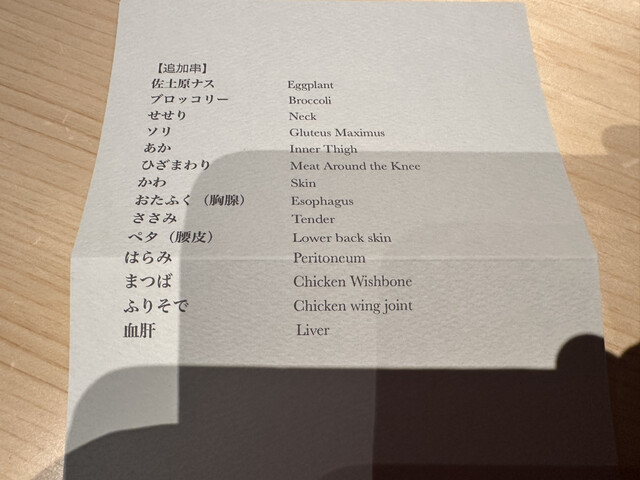 【追加串】
佐土原ナス Eggplant
ブロッコリー Broccoli
せせり Neck
ソリ Gluteus Maximus
あか Inner Thigh
ひざまわり Meat Around the Knee
かわ Skin
おたふく（胸腺） Esophagus
ささみ Tender
ペタ（腰皮） Lower back skin
はらみ Peritoneum
まつば Chicken Wishbone
ふりそで Chicken wing joint
血肝 Liver